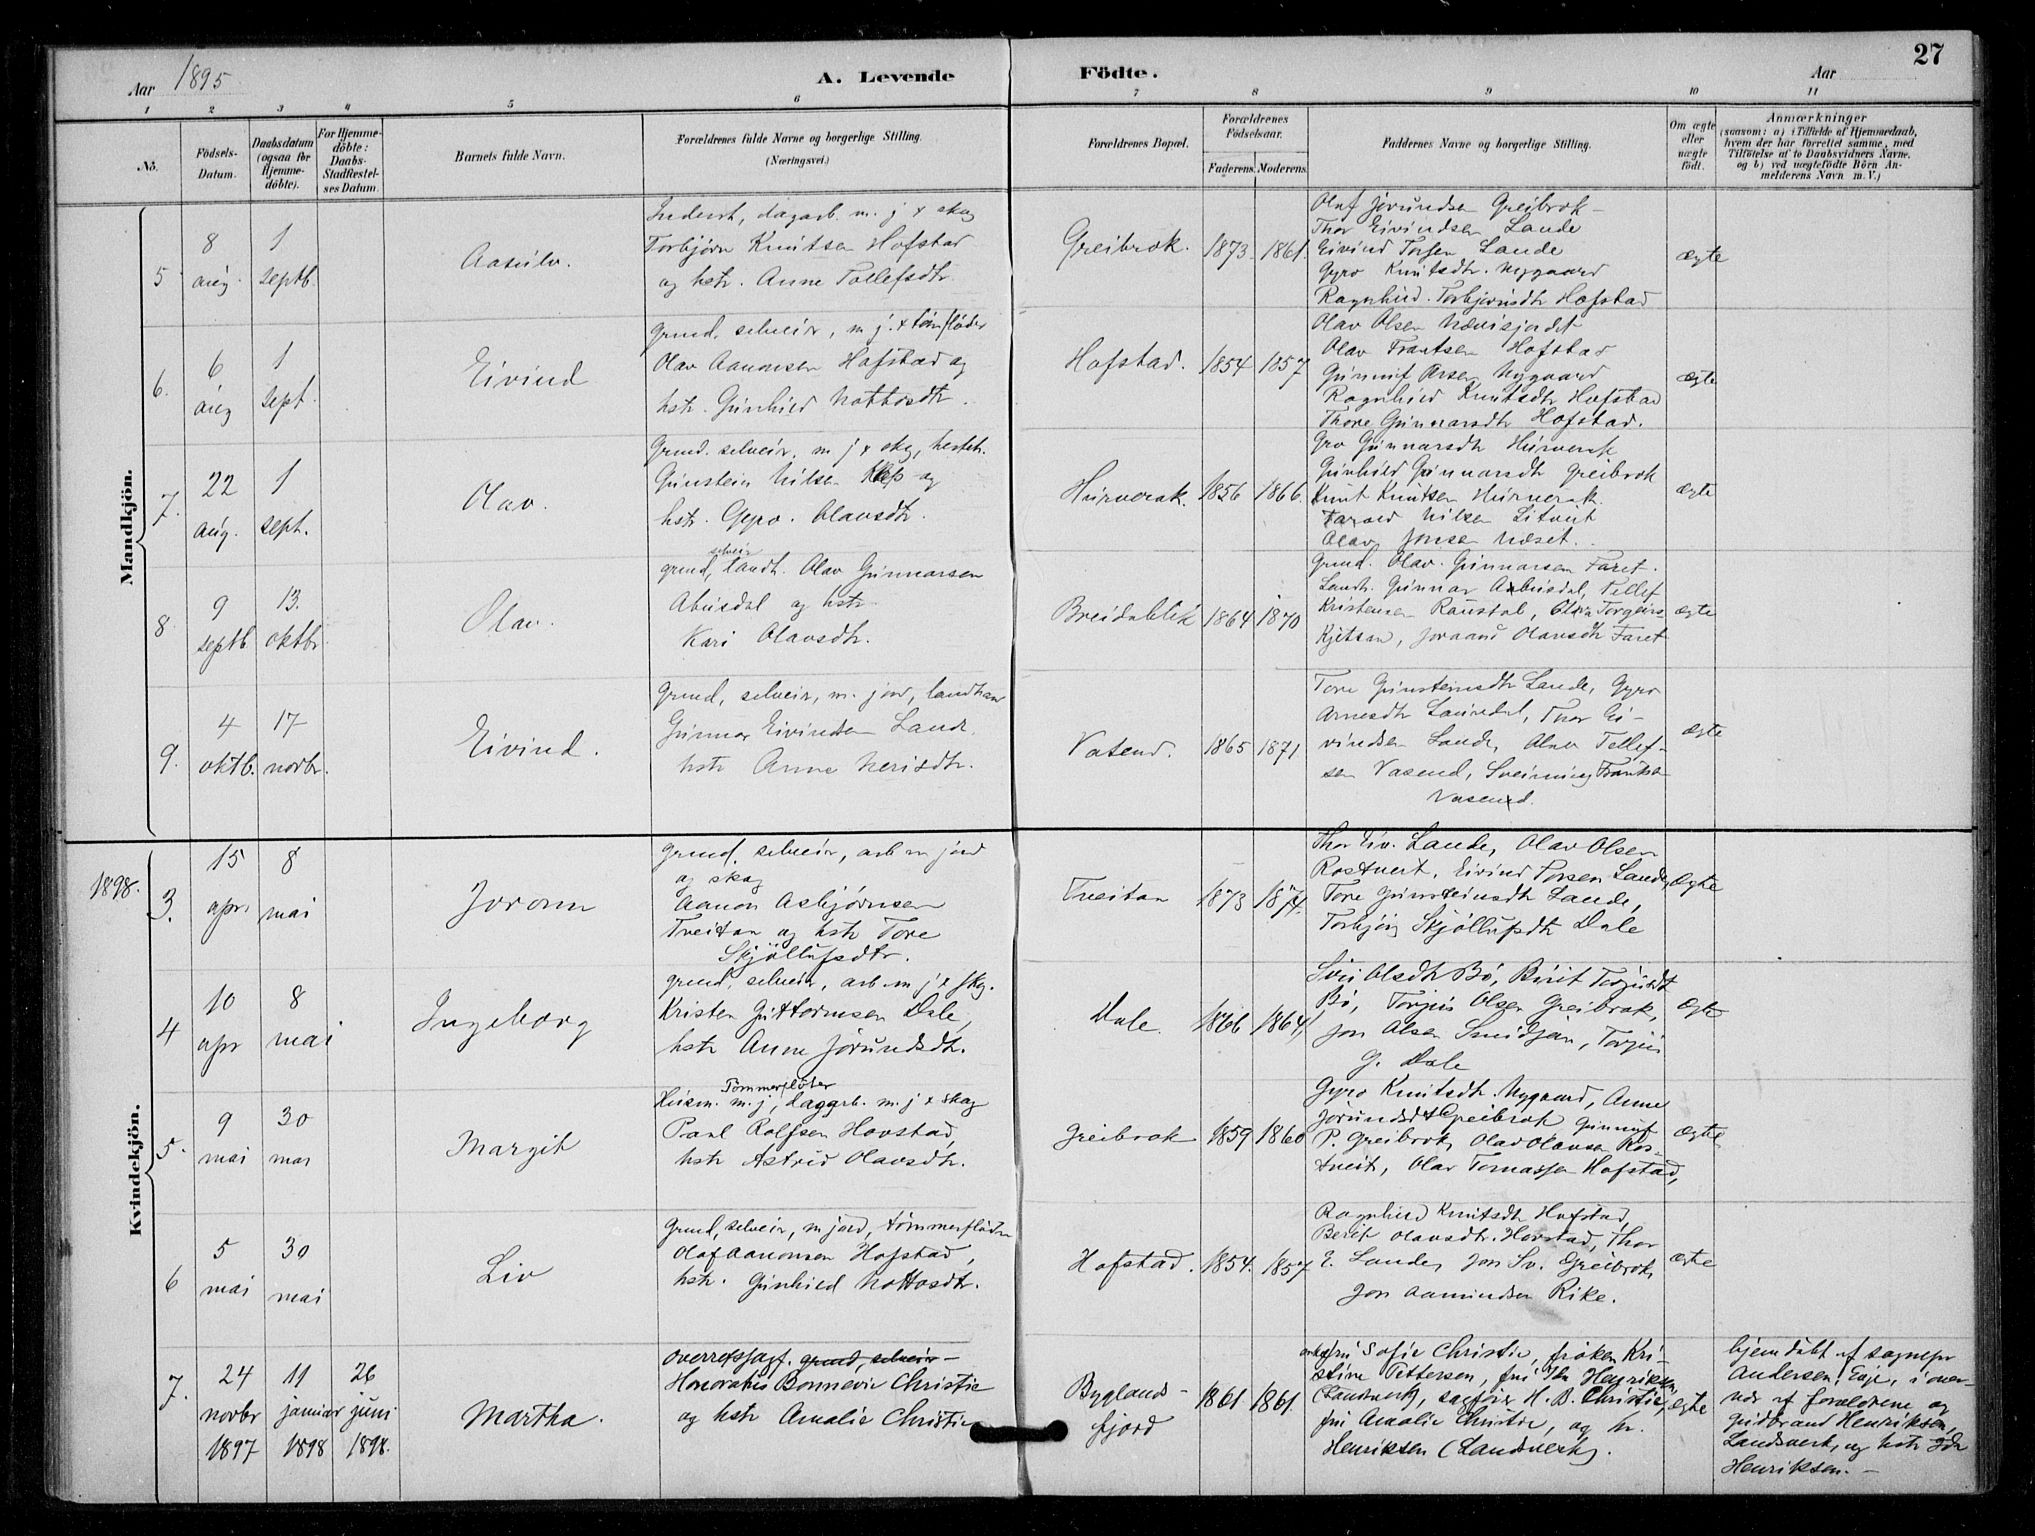 27
Aar 1895
A. Levende Födte.
Aar
1 2 3 4 5 6 7 8 9 10 11
No.
Födsels-Datum.
Daabsdatum (ogsaa for Hjemme-döbte).
For Hjemme-döbte: Daabs-Stadfæstel-ses Datum.
Barnets fulde Navn.
Forældrenes fulde Navne og borgerlige Stilling. (Næringsvei.)
Forældrenes Bopæl.
Forældrenes Födselsaar.
Faderens. Moderens.
Faddernes Navne og borgerlige Stilling.
Om ægte eller uægte födt.
Anmærkninger
(saasom: a) i Tilfælde af Hjemmedaab,
hvem der har forrettet samme, med
Tilföielse af to Daabsvidners Navne.
og b) ved uægtefödte Börn An-
melderens Navn m. V.)
Mandkjön.
5
8 aug.
1 septb.
Aasulv.
Inderst, dagarb. m. j & skog
Torbjørn Knutsen Hofstad
og hstr. Anne Tollefsdtr.
Greibrok.
1873. 1861.
Olaf Jørundsen Greibrok
Thor Eivindsen Lande
Eivind Torsen Lande
Gyro Knutsdtr. Nygaard
Ragnhild Torbjørnsdtr Hofstad
ægte
6.
6 aug
1 sept.
Eivind
Grund. selveier, m j. & tømfløder
Olav Aanonsen Hofstad og
hstr. Gunhild Nottosdtr.
Hofstad.
1854 1857
Olav Olsen
Olav Frantsen Hofstad
Nygaard
Ragnhild Knutsdtr Hofstad
Thore Gunnarsdtr Hofstad.
ægte
7.
22 aug.
1 sept.
Olav.
Grund. selveier. m j & skg,
Gunstein Nilsen og
hstr. Gyro. Olavsdtr.
Hurverak.
1856 1866.
Gro Gunnarsdtr Hurverak
Gunhild Gunnarsdtr Greibrok
Knut Knutsen Hurverak.
Nilsen
Olav Jonsen Næset.
ægte
8.
9 septb
13. oktbr.
Olav.
grund, selveir landh. Olav Gunnarsen
Abusdal og hstr
Kari Olavsdtr.
Breidablik
1864 1870
Grund. Olav Gunnarsen Faret.
Landh. Gunnar Abusdal, Tellef
Kristensen Raustøl, Olav Torgeirs.
Kjetsan, Joraand Olavsdtr Faret
ægte
9.
4 oktb.
17 novbr.
Eivind.
Grund, selveir, m. jord, landhan
Gunnar Eivindsen Lande
hstr Anne Nerisdtr.
Vatend.
1865 1871
Tore Gunsteinsdtr Lande, Gyro
Arnesdtr Lauvdal, Thor Ei-
vindsen Lande, Olav Tellef-
sen Vasend, Sveinung Frantsen
Vasend.
ægte
1898.
Kvindekjön.
3.
15 apr.
8 mai
Joronn
Grund. selveier, arb m jord
og skog
Aanon Asbjørnsen
Treitan og hstr Tore
Skjøllufsdtr.
Treitan
1873 1874.
Thor Eiv. Lande, Olav Olsen
Rostveit, Eivind Torsen Lande,
Tore Gunsteinsdtr Lande,
Torbjørg Skjøllufsdtr Dale
ægte
4
10 apr
8 mai
Ingeborg
grund. selveir, arb. m j & skg.
Kristen Guttormsen Dale,
hstr Anne Jørundsdtr.
Dale.
1866 1864,
Siri Olsdtr Bø, Birit
Bø, Torjus Olsen Greibrok,
Jon Olsen Smidjan, Torjus
G. Dale
ægte
5.
9 mai
30 mai
Margit
Tømmerfløter
Husm. m. j, daggarb. m. j & skog
Paul Rolfsen Hovstad,
hstr Astrid Olavsdtr.
Greibrok
1859 1860
Gyro Knutsdtr. Nygaard, Anne
Jørundsdtr Greibrok Gunnuf
P. Greibrok, Olav Olavsen Ros-
tveit, Olav Tomassen Hofstad,
ægte
6
5 mai
30 mai
Liv
Grund, selveir, m jord, tømmerfløder
Olaf Aanonsen Hofstad,
hstr. Gunhild Nottosdtr.
Hofstad.
1854. 1857
Ragnhild Knutsdtr Hofstad,
Berit Olavsdtr. Hovstad, Thor
E. Lande, Jon Sv. Greibrok,
Jon Aamundsen Rike.
ægte
7.
24 novbr 1897
11 januar 1898
26 juni 1898.
Martha.
Overretssagf. grund, selveier
Honoratus Bonnevie Christie
og hstr Amalie Christie
Byglands-
fjord
1861 1861.
enkefru Sofie Christie, frøken Kri-
stine Pettersen, fru Ida Henriksen
(Landsverk), sagfører H. B. Christie,
fru Amalie Christie, og hr.
Henriksen (Landsverk).
ægte
hjemdøbt af sognepr
Andersen, Evje, i over-
vær af forældrene og
Gudbrand Henriksen,
Landsverk, og hstr Ida
Henriksen.